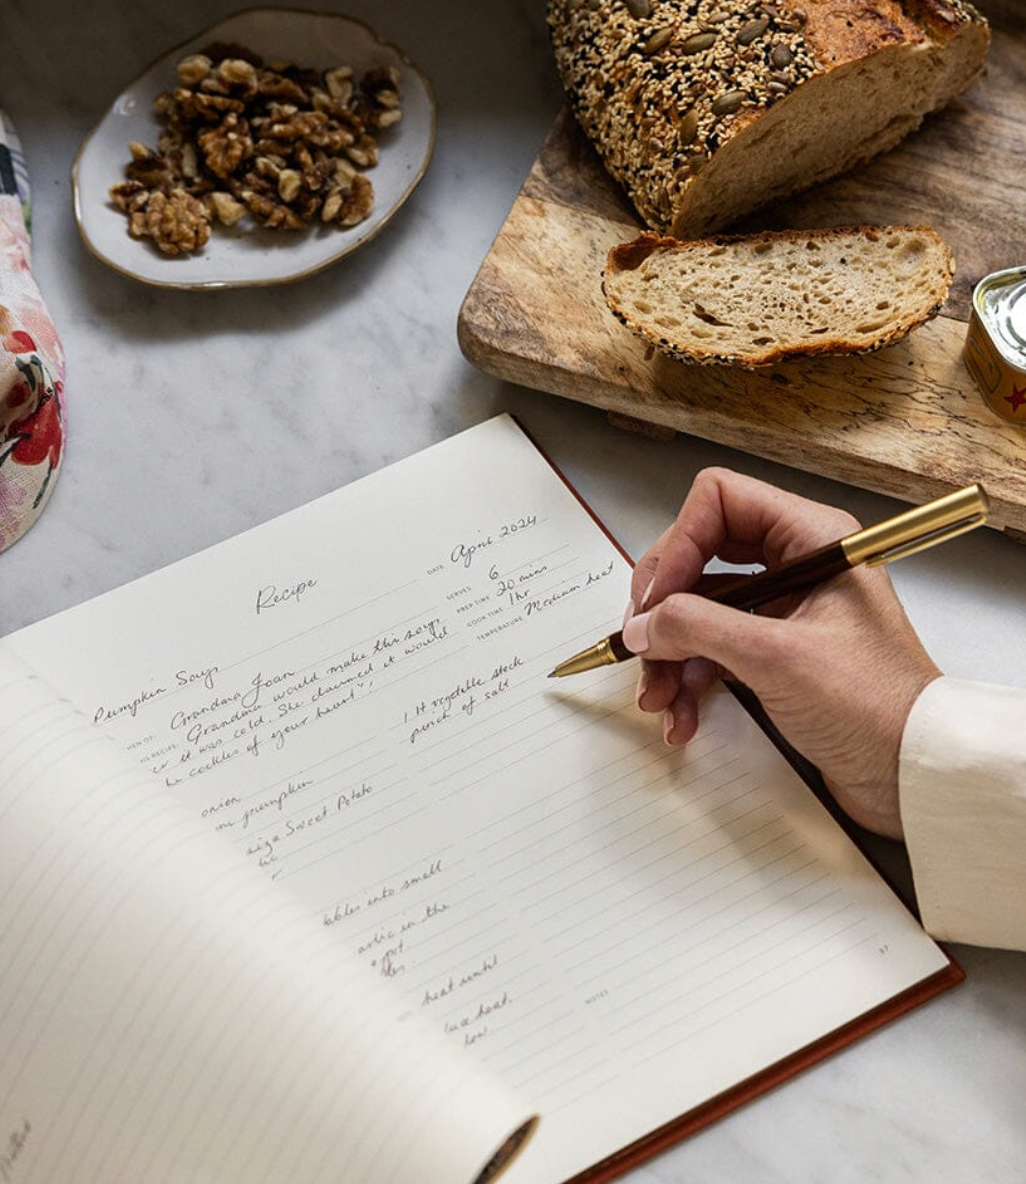 Recipe
DATE April 2024
SERVES 6
PREP TIME 20 mins
COOK TIME 1hr
TEMPERATURE Medium heat
Pumpkin Soup
HEN OF: Grandma Joan
HIS RECIPE: Grandma would make this soup
er it was cold. She claimed it would
he cockles of your heart"!
onion
pumpkin
Sweet Potato
1 lt vegetable stock
pinch of salt
ables into small
arlic in the
pot.
heat until
heat.
low
NOTES
37